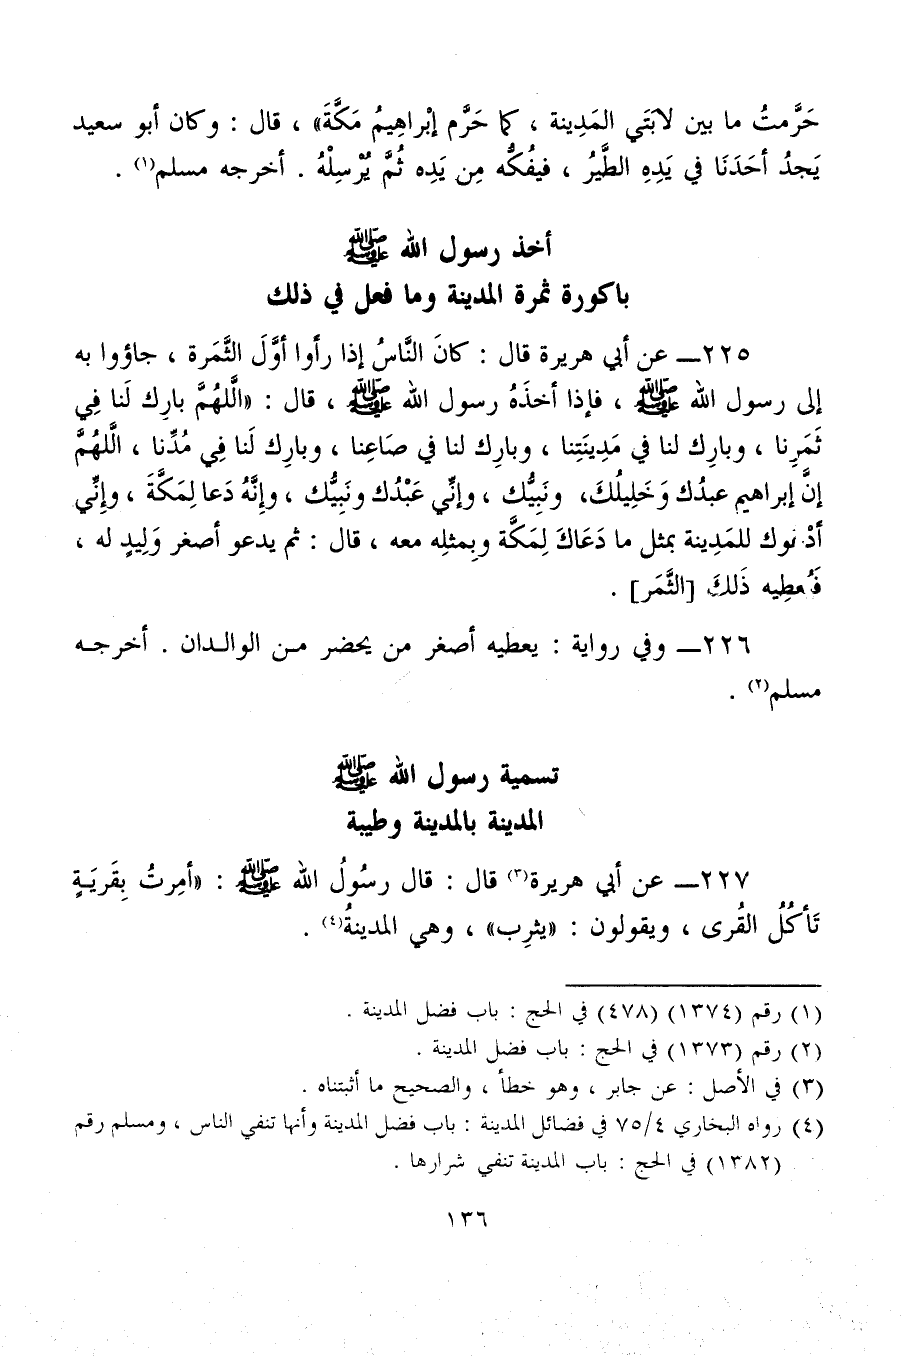 حَرَّمتُ ما بين لابَتَي المَدِينة ، كما حَرَّم إبْراهِيمُ مَكَّةَ» ، قال : وكان أبو سعيد
يَجدُ أحَدَنَا في يَدِهِ الطَّيرُ ، فيفُكُّه مِن يَدِه ثُمَّ يُرْسِلْهُ . أخرجه مسلم(١) .
أخذ رسول الله ﷺ
باكورة ثمرة المدينة وما فعل في ذلك
٢٢٥ــ عن أبي هريرة قال : كانَ النَّاسُ إذا رأوا أوَّلَ الثَّمَرة ، جاؤوا به
إلى رسول الله ﷺ ، فإذا أخذَهُ رسول الله ﷺ ، قال : «اللَّهُمَّ بارِك لَنا فِي
ثَمَرِنا ، وبارِك لنا في مَدِينَتِنا ، وبارِك لنا في صَاعِنا ، وبارِك لَنا فِي مُدِّنا ، اللَّهُمَّ
إنَّ إبراهيم عبدُك وَخَلِيلُكَ، ونَبِيُّك ، وإنِّي عَبْدُك ونَبِيُّك ، وإنَّهُ دَعا لِمَكَّةَ ، وإنِّي
أدْعوك للمَدِينة بمثل ما دَعَاكَ لِمَكَّة وبِمثلِه معه ، قال : ثم يدعو أصغر وَلِيدٍ له ،
فَيُعطِيه ذَلكَ [الثَّمَر] .
٢٢٦ــ وفي رواية : يعطيه أصغر من يحضر مـن الوالـدان . أخرجـه
مسلم(٢) .
تسمية رسول الله ﷺ
المدينة بالمدينة وطيبة
٢٢٧ــ عن أبي هريرة(٣) قال : قال رسُولُ الله ﷺ : «أمِرتُ بِقَريَـةٍ
تَأكُلُ القُرى ، ويقولون : «يثرِب» ، وهي المدينةُ(٤) .
(١) رقم (١٣٧٤) (٤٧٨) في الحج : باب فضل المدينة .
(٢) رقم (١٣٧٣) في الحج : باب فضل المدينة .
(٣) في الأصل : عن جابر ، وهو خطأ ، والصحيح ما أثبتناه .
(٤) رواه البخاري ٤/٧٥ في فضائل المدينة : باب فضل المدينة وأنها تنفي الناس ، ومسلم رقم
(١٣٨٢) في الحج : باب المدينة تنفي شرارها .
١٣٦